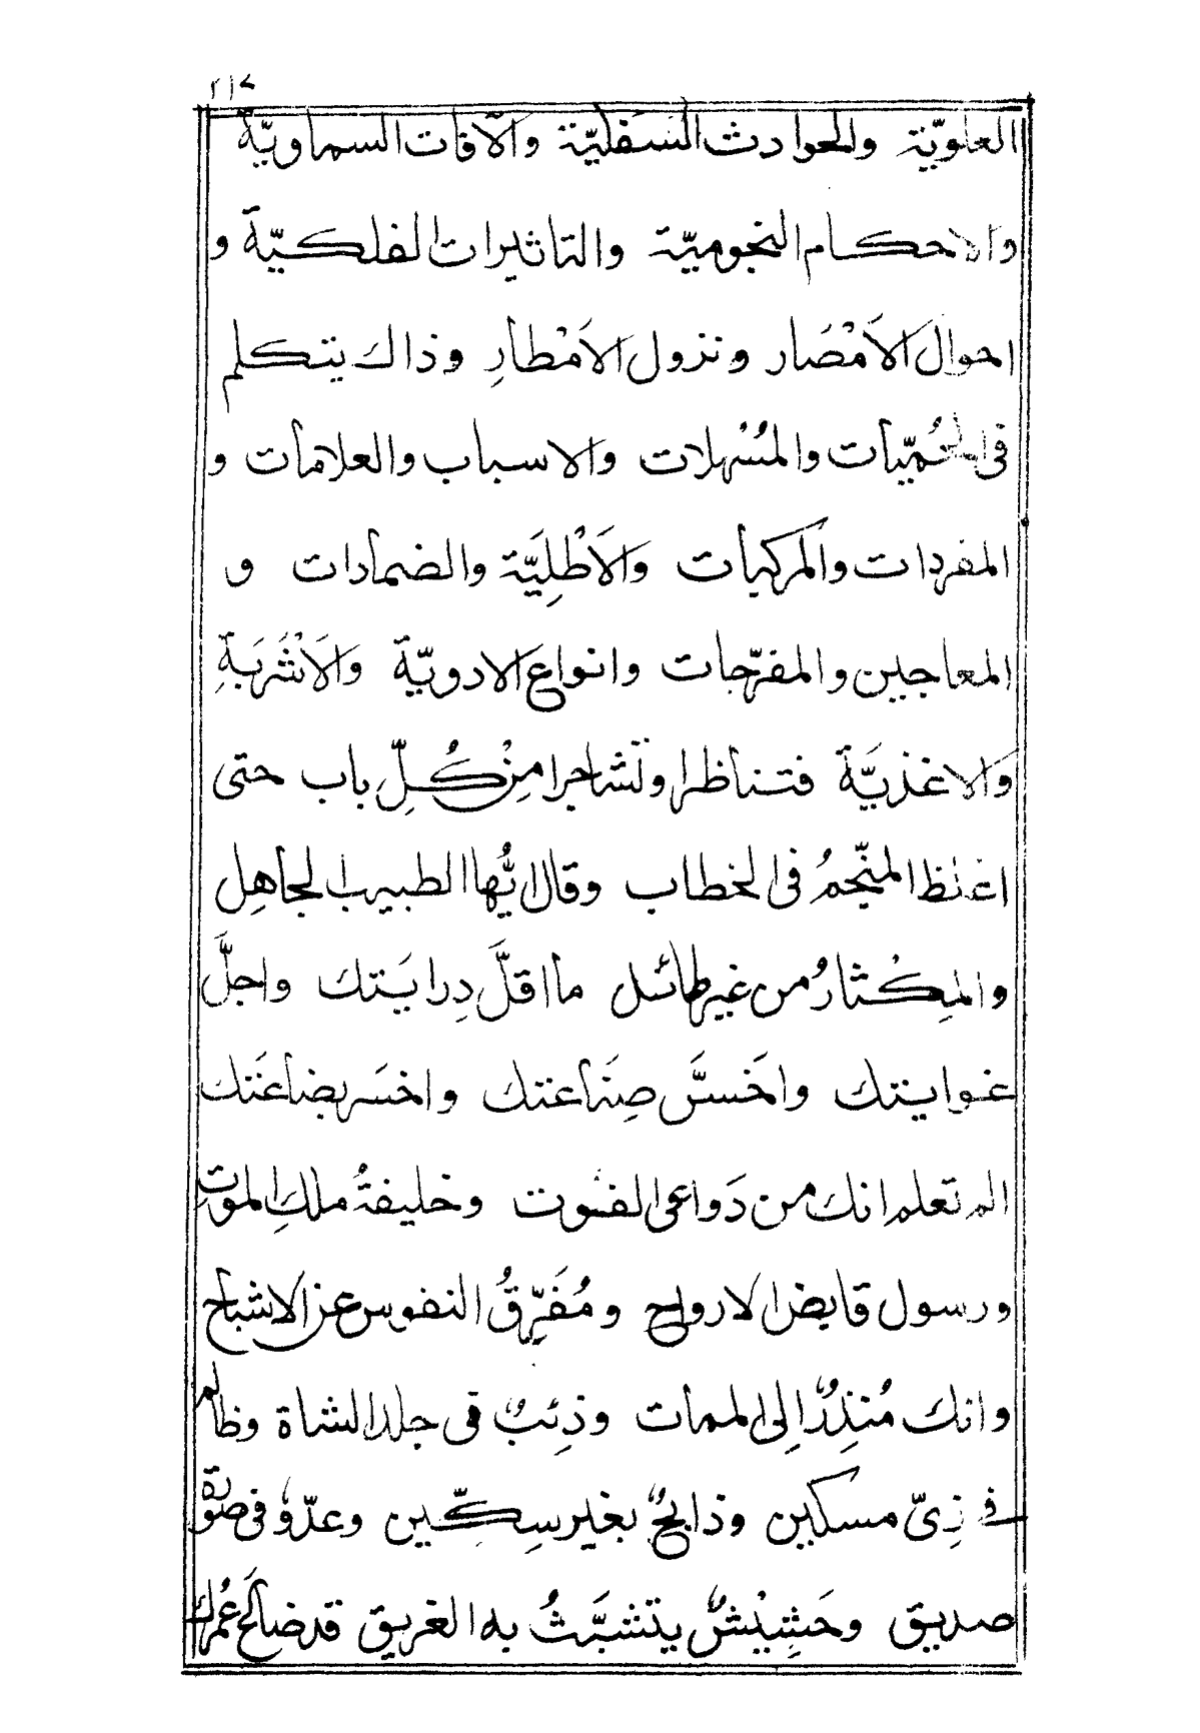 ٢١٧
العلويّة والحوادث السَفليّة والآفات السماويّة
والاحكام النجوميّة والتاثيرات الفلكيّة و
احوال الاَمْصَار ونزول الاَمْطارِ وذاك يتكلم
فى الحُمّيات والمُسْهلات والاسباب والعلامات و
المفردات والمركبات والاَطْلِيَّة والضمادات و
المعاجين والمفرّحات وانواع الادويّة والاَشْرَبَةِ
والاغذيَّة فتناظرا وتَشاجرا مِنْ كُلِّ باب حتى
اغلظ المنجّمُ فى الخطاب وقال ايُّها الطبيب الجاهِل
والمِكْثارُ من غير طائل ما اقلَّ دِرايَتك واجلَّ
غوايتك واخَسَّ صِنَاعتك واخسَر بضاعَتك
الم تعلم انك من دَواعى الفوت وخليفةُ ملكِ الموتِ
ورسول قابض الارواح ومُفَرِّقُ النفوس عن الاشباح
وانك مُنذِرٌ اِلى الممات وذِئبٌ فى جلد الشاة وظالم
فى زِىّ مسكين وذابحٌ بغير سِكّين وعدّوٌ فى صورة
صديق وحَشِيْشٌ يتشبَّثُ به الغريق قد ضالَح عُمرك